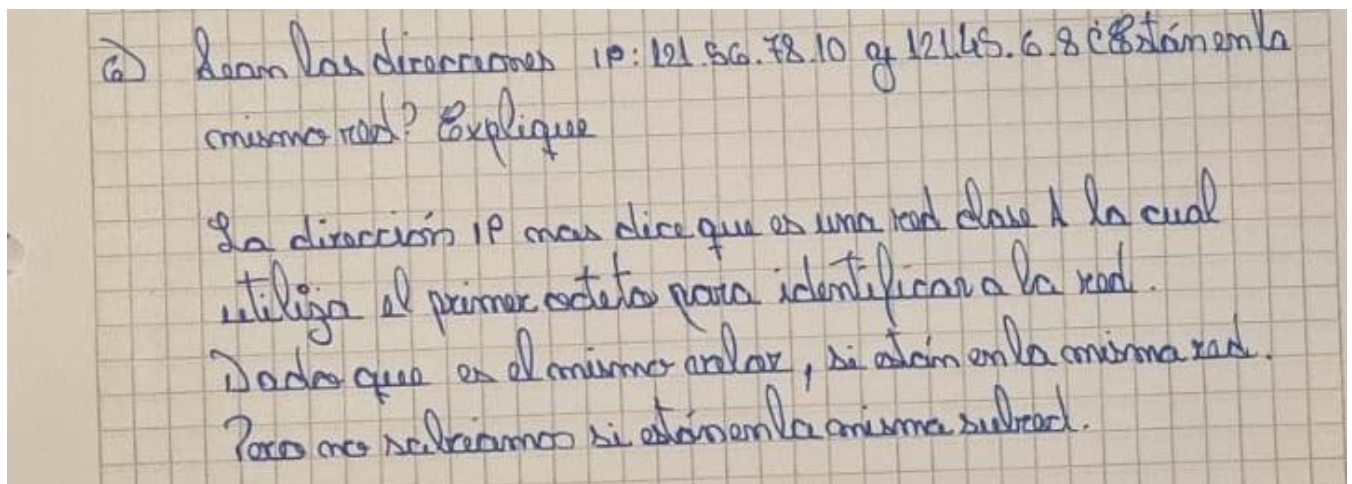 6) Sean las direcciones IP: 121.56.78.10 y 121.45.6.8 ¿Están en la
misma red? Explique
La dirección IP nos dice que es una red clase A la cual
utiliza el primer octeto para identificar a la red.
Dado que es el mismo valor, si están en la misma red.
Pero no sabríamos si están en la misma subred.